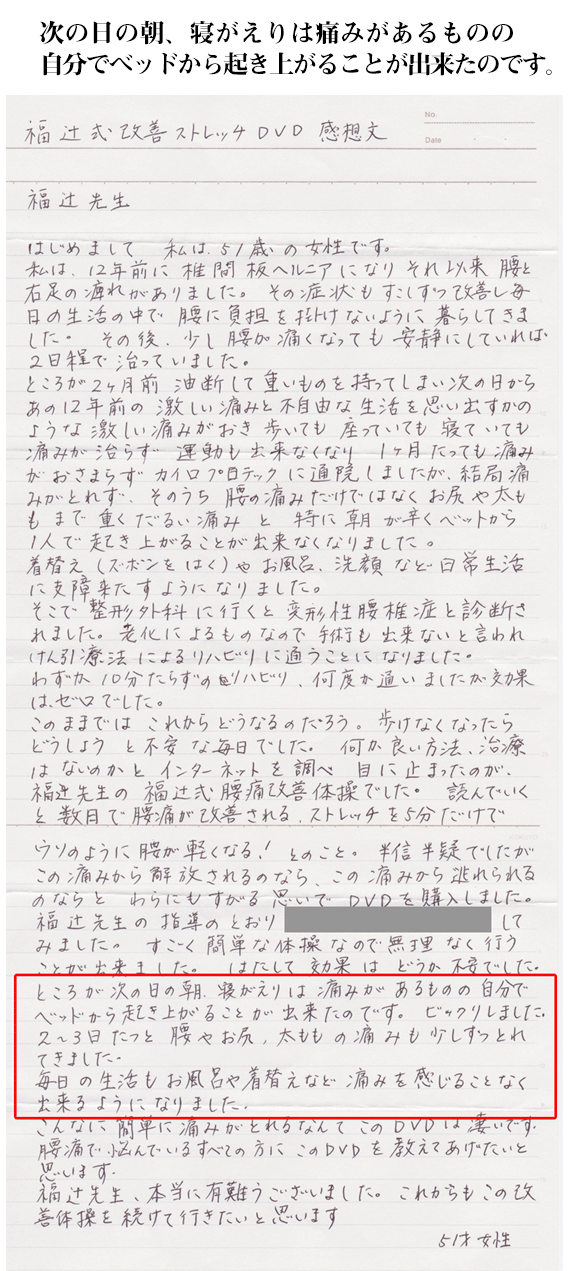 次の日の朝、寝がえりは痛みがあるものの
自分でベッドから起き上がることが出来たのです。
No.
Date
福辻式改善ストレッチDVD 感想文
福辻先生
はじめまして 私は、51歳の女性です。
私は、12年前に椎間板ヘルニアになりそれ以来 腰と
右足の痺れがありました。その症状もすこしずつ改善し毎
日の生活の中で 腰に負担を掛けないように暮らしてきま
した。その後、少し腰が痛くなっても 安静にしていれば
2日程で治っていました。
ところが2ヶ月前 油断して重いものを持ってしまい次の日から
あの12年前の激しい痛みと不自由な生活を思い出すかの
ような激しい痛みがおき歩いても座っていても寝ていても
痛みが治らず 運動も出来なくなり 1ヶ月たっても痛み
がおさまらずカイロプロテックに通院しましたが、結局痛
みがとれず、そのうち腰の痛みだけではなくお尻や太も
もまで重くだるい痛みと 特に朝が辛くベットから
1人で起き上がることが出来なくなりました。
着替え(ズボンをはく)やお風呂、洗顔など日常生活
に支障来たすようになりました。
そこで整形外科に行くと変形性腰椎症と診断さ
れました。老化によるものなので手術も出来ないと言われ
けん引療法によるリハビリに通うことになりました。
わずか10分たらずのリハビリ、何度か通いましたが効果
は、ゼロでした。
このままでは これからどうなるのだろう。歩けなくなったら
どうしよう と不安な毎日でした。何か良い方法、治療
はないのかと インターネットを調べ 目に止まったのが、
福辻先生の 福辻式腰痛改善体操でした。読んでいく
と数日で腰痛が改善される、ストレッチを5分だけで
KOKUYO
ウソのように腰が軽くなる! とのこと。半信半疑でしたが
この痛みから解放されるのなら、この痛みから逃れられる
のならと わらにもすがる思いで DVDを購入しました。
福辻先生の指導のとおり して
みました。すごく簡単な体操なので無理なく行う
ことが出来ました。はたして効果は どうか不安でした。
ところが次の日の朝、寝がえりは痛みがあるものの自分で
ベッドから起き上がることが出来たのです。ビックリしました。
2~3日たつと 腰やお尻、太ももの痛みも少しずつとれ
てきました。
毎日の生活もお風呂や着替えなど 痛みを感じることなく
出来るようになりました。
こんなに簡単に痛みがとれるなんてこのDVDは凄いです。
腰痛で悩んでいるすべての方にこのDVDを教えてあげたいと
思います。
福辻先生、本当に有難うございました。これからもこの改
善体操を続けて行きたいと思います
51才 女性